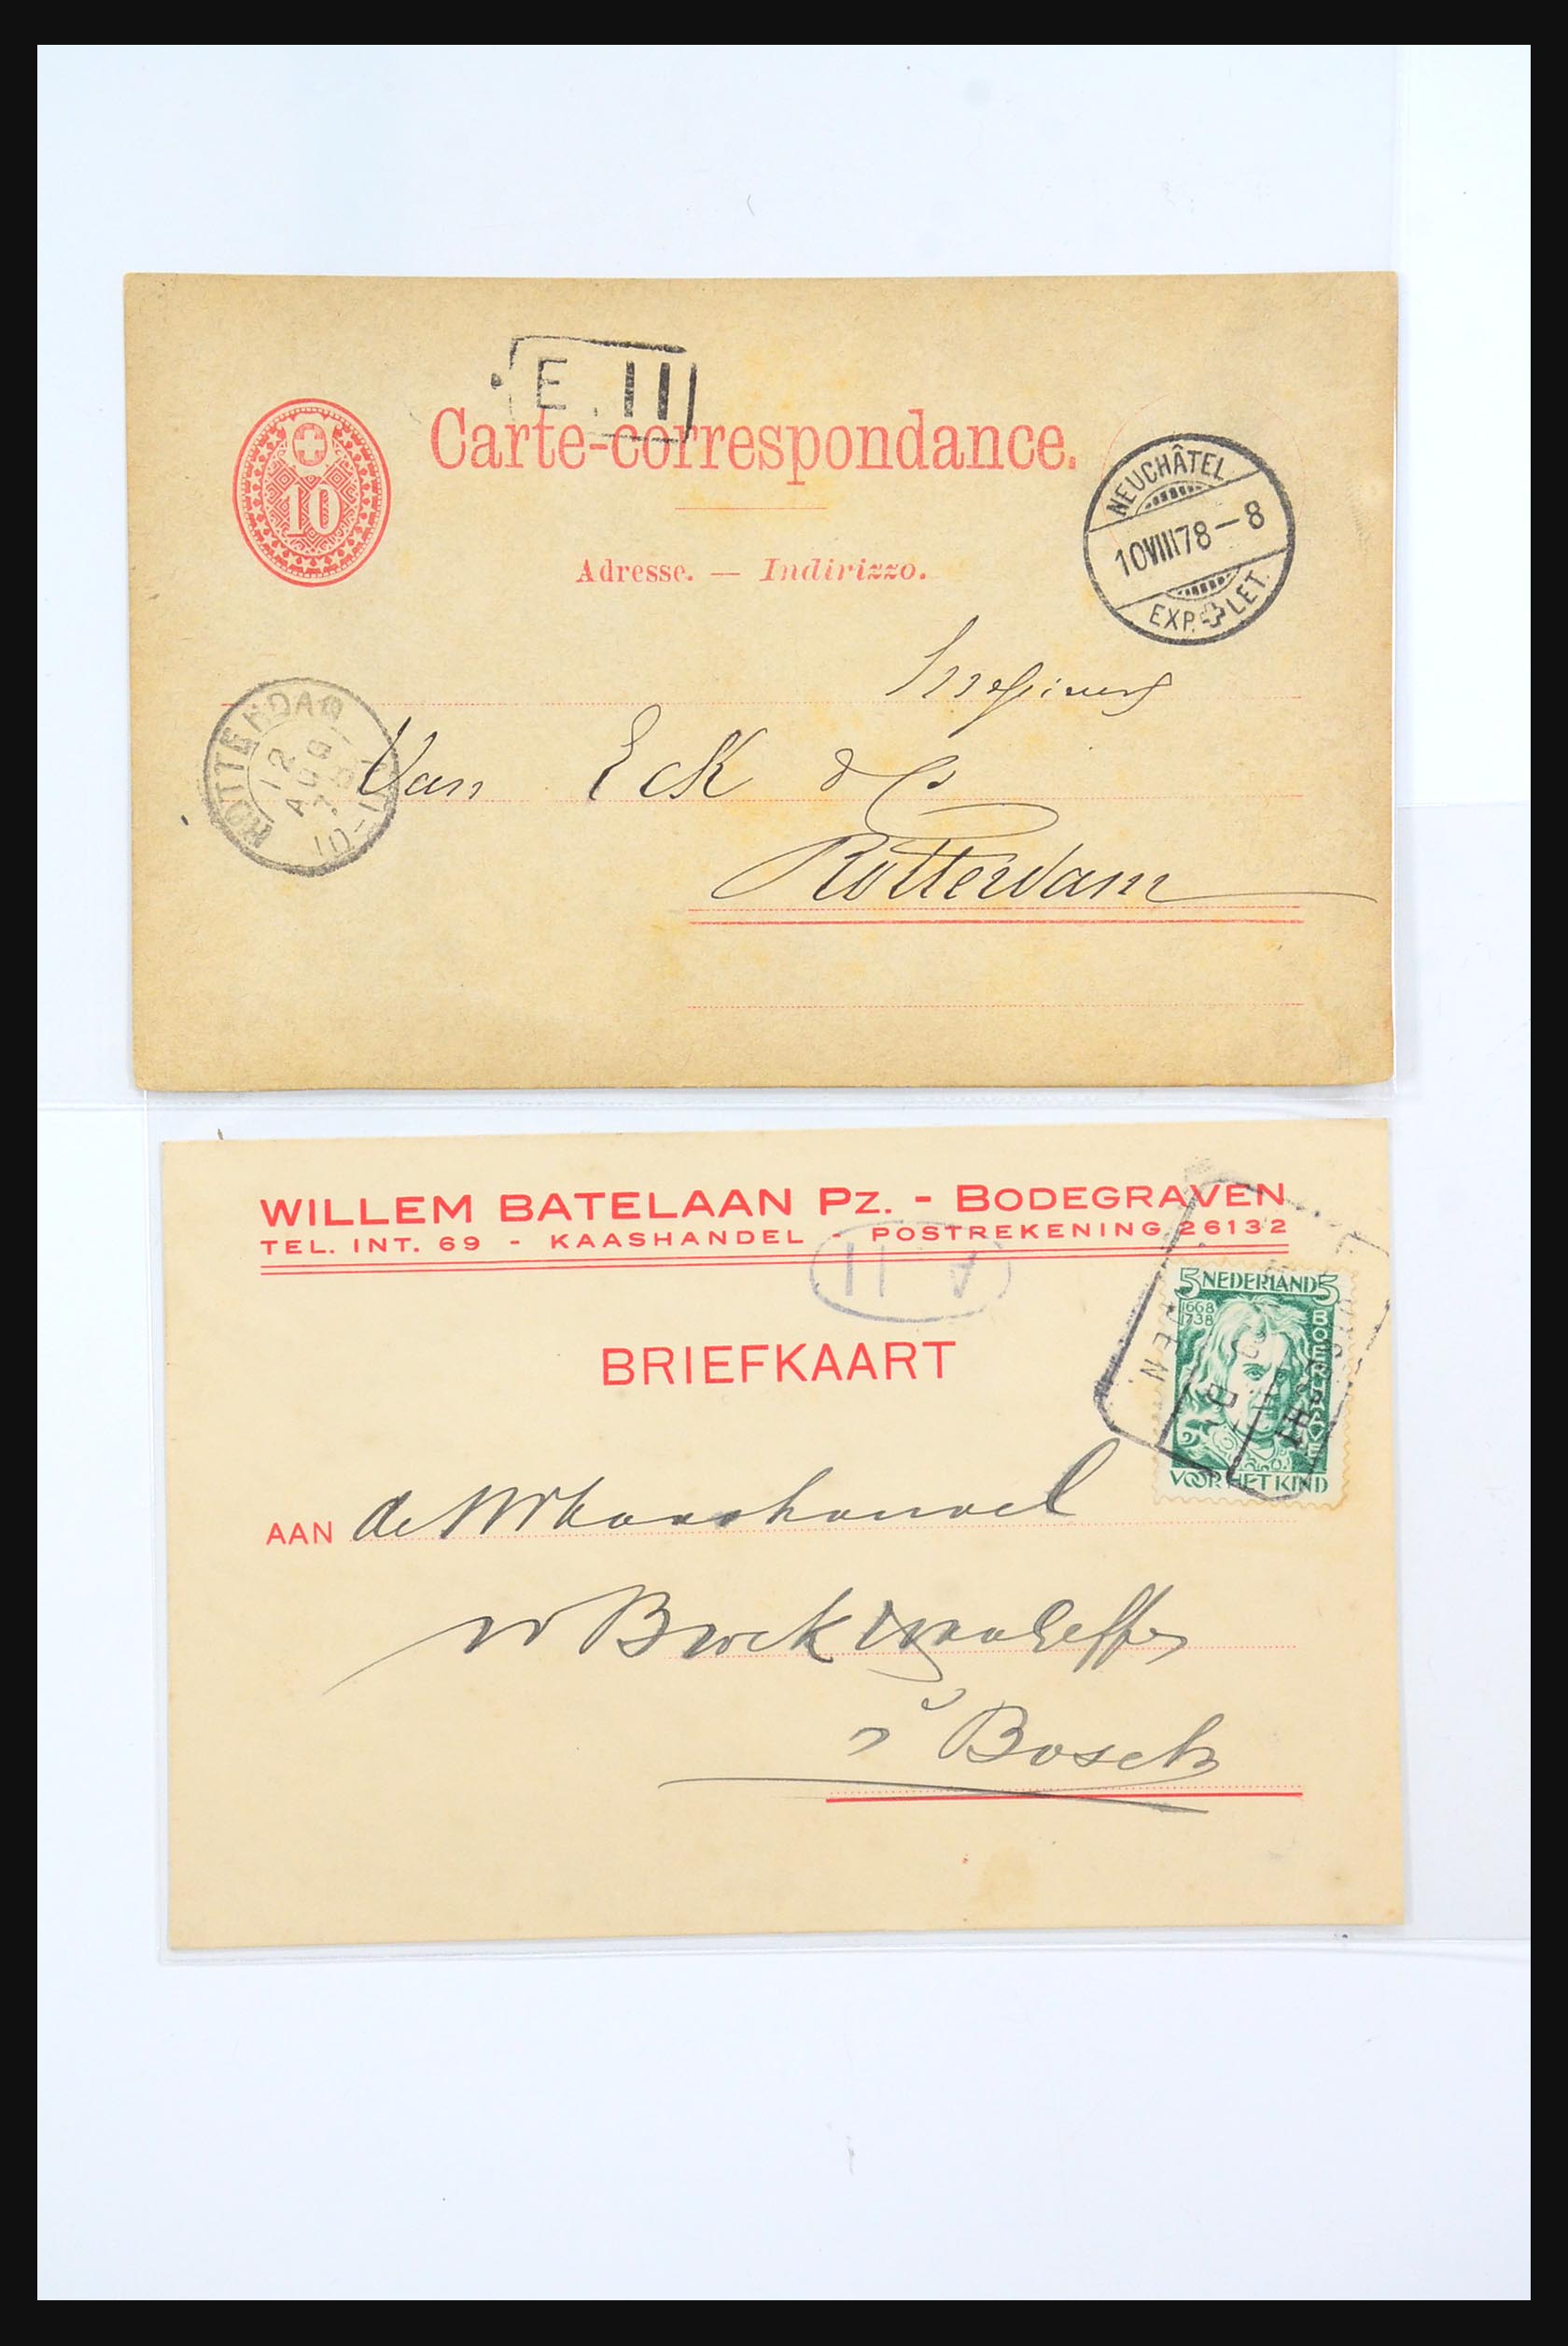 E. III
10
Carte-correspondance.
NEUCHÂTEL
10VIII78-8
EXP. LET.
Adresse. — Indirizzo.
ROTTERDAM
12
AUG
78
10-11
Van Eck & Co
Rotterdam
WILLEM BATELAAN Pz. - BODEGRAVEN
TEL. INT. 69 - KAASHANDEL - POSTREKENING 26132
A II
5 NEDERLAND 5
1668
1738
BOERHAAVE
VOOR HET KIND
BRIEFKAART
AAN de
Bosch